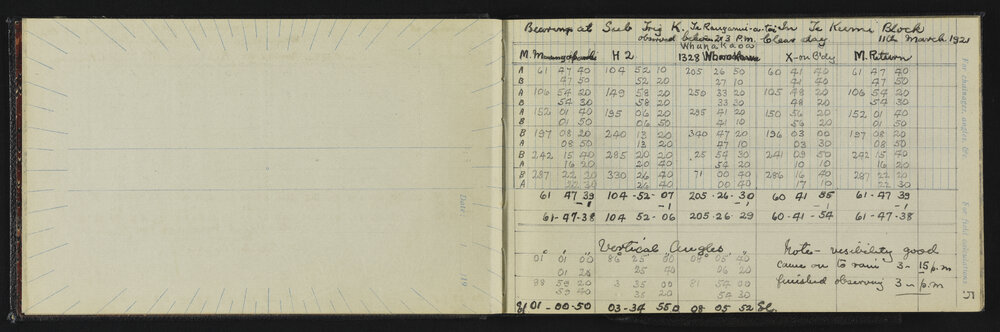 Bearings at Sub Trig K. Te Rangawai-a-tai In Te Kumi Block
observed between 2 & 3 P.M. Clear day 11th March 1921
Whanakaoa
M. H 2 1328 X-on B'dy M. Return
A 61 47 40 104 52 10 205 26 50 60 41 40 61 47 40
B 47 50 52 20 27 10 41 40 47 50
A 106 54 20 149 58 20 250 33 20 105 48 20 106 54 20
B 54 30 58 20 33 30 48 20 54 30
A 152 01 40 195 06 20 295 41 20 150 56 20 152 01 40
B 01 50 06 50 41 10 56 20 01 50
B 197 08 20 240 13 20 340 47 20 196 03 00 197 08 20
A 08 50 13 20 47 10 03 30 08 50
B 242 15 40 285 20 20 25 54 30 241 09 50 242 15 40
A 16 20 20 40 54 20 10 10 16 20
B 287 22 20 330 26 40 71 00 40 286 16 40 287 22 20
A 22 30 26 40 00 40 17 10 22 30
61 47 39 104-52-07 205-26-30 60 41 55 61-47-39
-1 -1 -1 -1 -1
61-47-38 104 52-06 205-26-29 60-41-54 61-47-38
Vertical Angles Note - visibility good
01 01 00 86 25 00 08 05 40 came on to rain 3-15 p.m
01 20 25 40 06 20
88 59 20 3 35 00 81 54 00 finished observing 3- p.m
59 40 35 20 54 30
El 01-00-50 03-34 55 D 08 05 52 El.
For changes angles &c.
For field calculations
Date
19
5